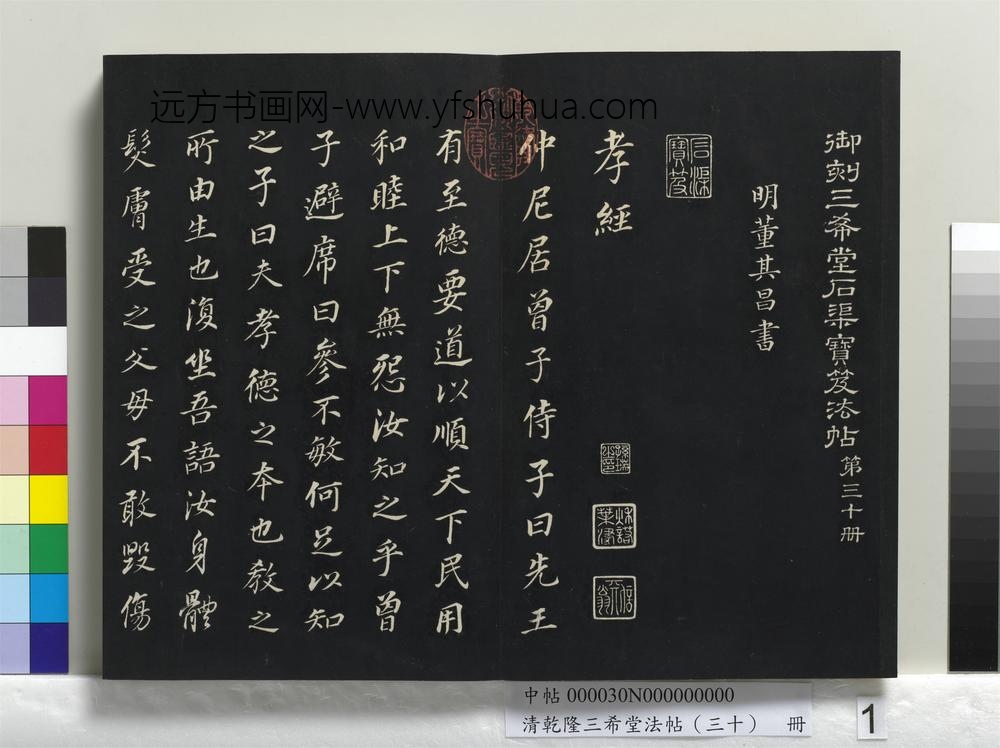 远方书画网-www.yfshuhua.com
御刻三希堂石渠寶笈法帖第三十册
明董其昌書
石渠寶笈
孝經
仲尼居曾子侍子曰先王
有至德要道以順天下民用
和睦上下無怨汝知之乎曾
子避席曰參不敏何足以知
之子曰夫孝德之本也教之
所由生也復坐吾語汝身體
髮膚受之父母不敢毀傷
中帖 000030N000000000
清乾隆三希堂法帖（三十） 冊
1